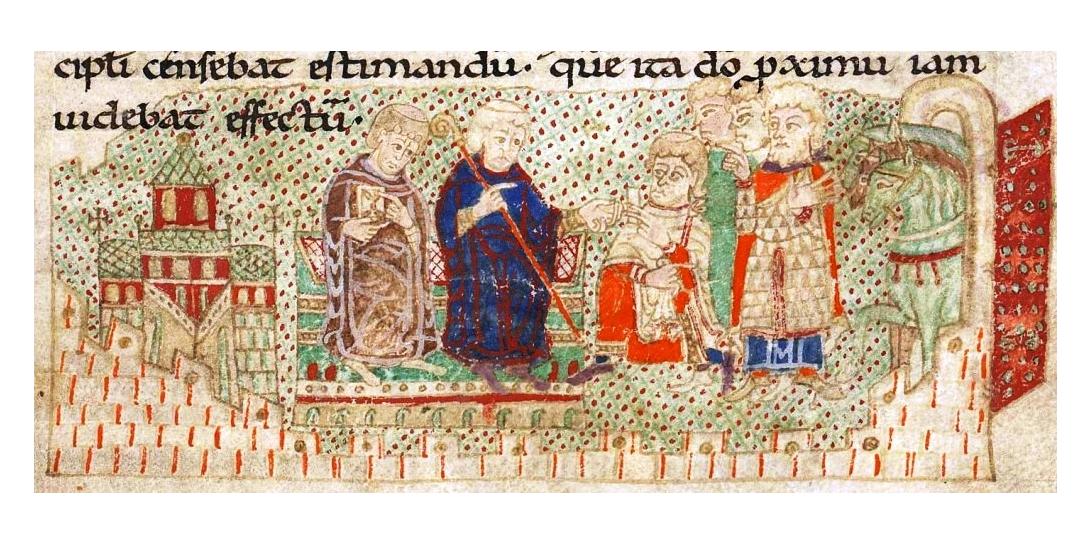 cipti censebat estimandū· que ita do ꝓximū iam
uidebat effectū·